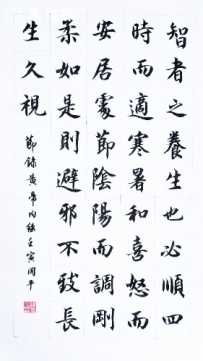 智者之養生也必順四
時而適寒暑和喜怒而
安居處節陰陽而調剛
柔如是則避邪不致長
生久視
節錄黃帝內經壬寅閏平